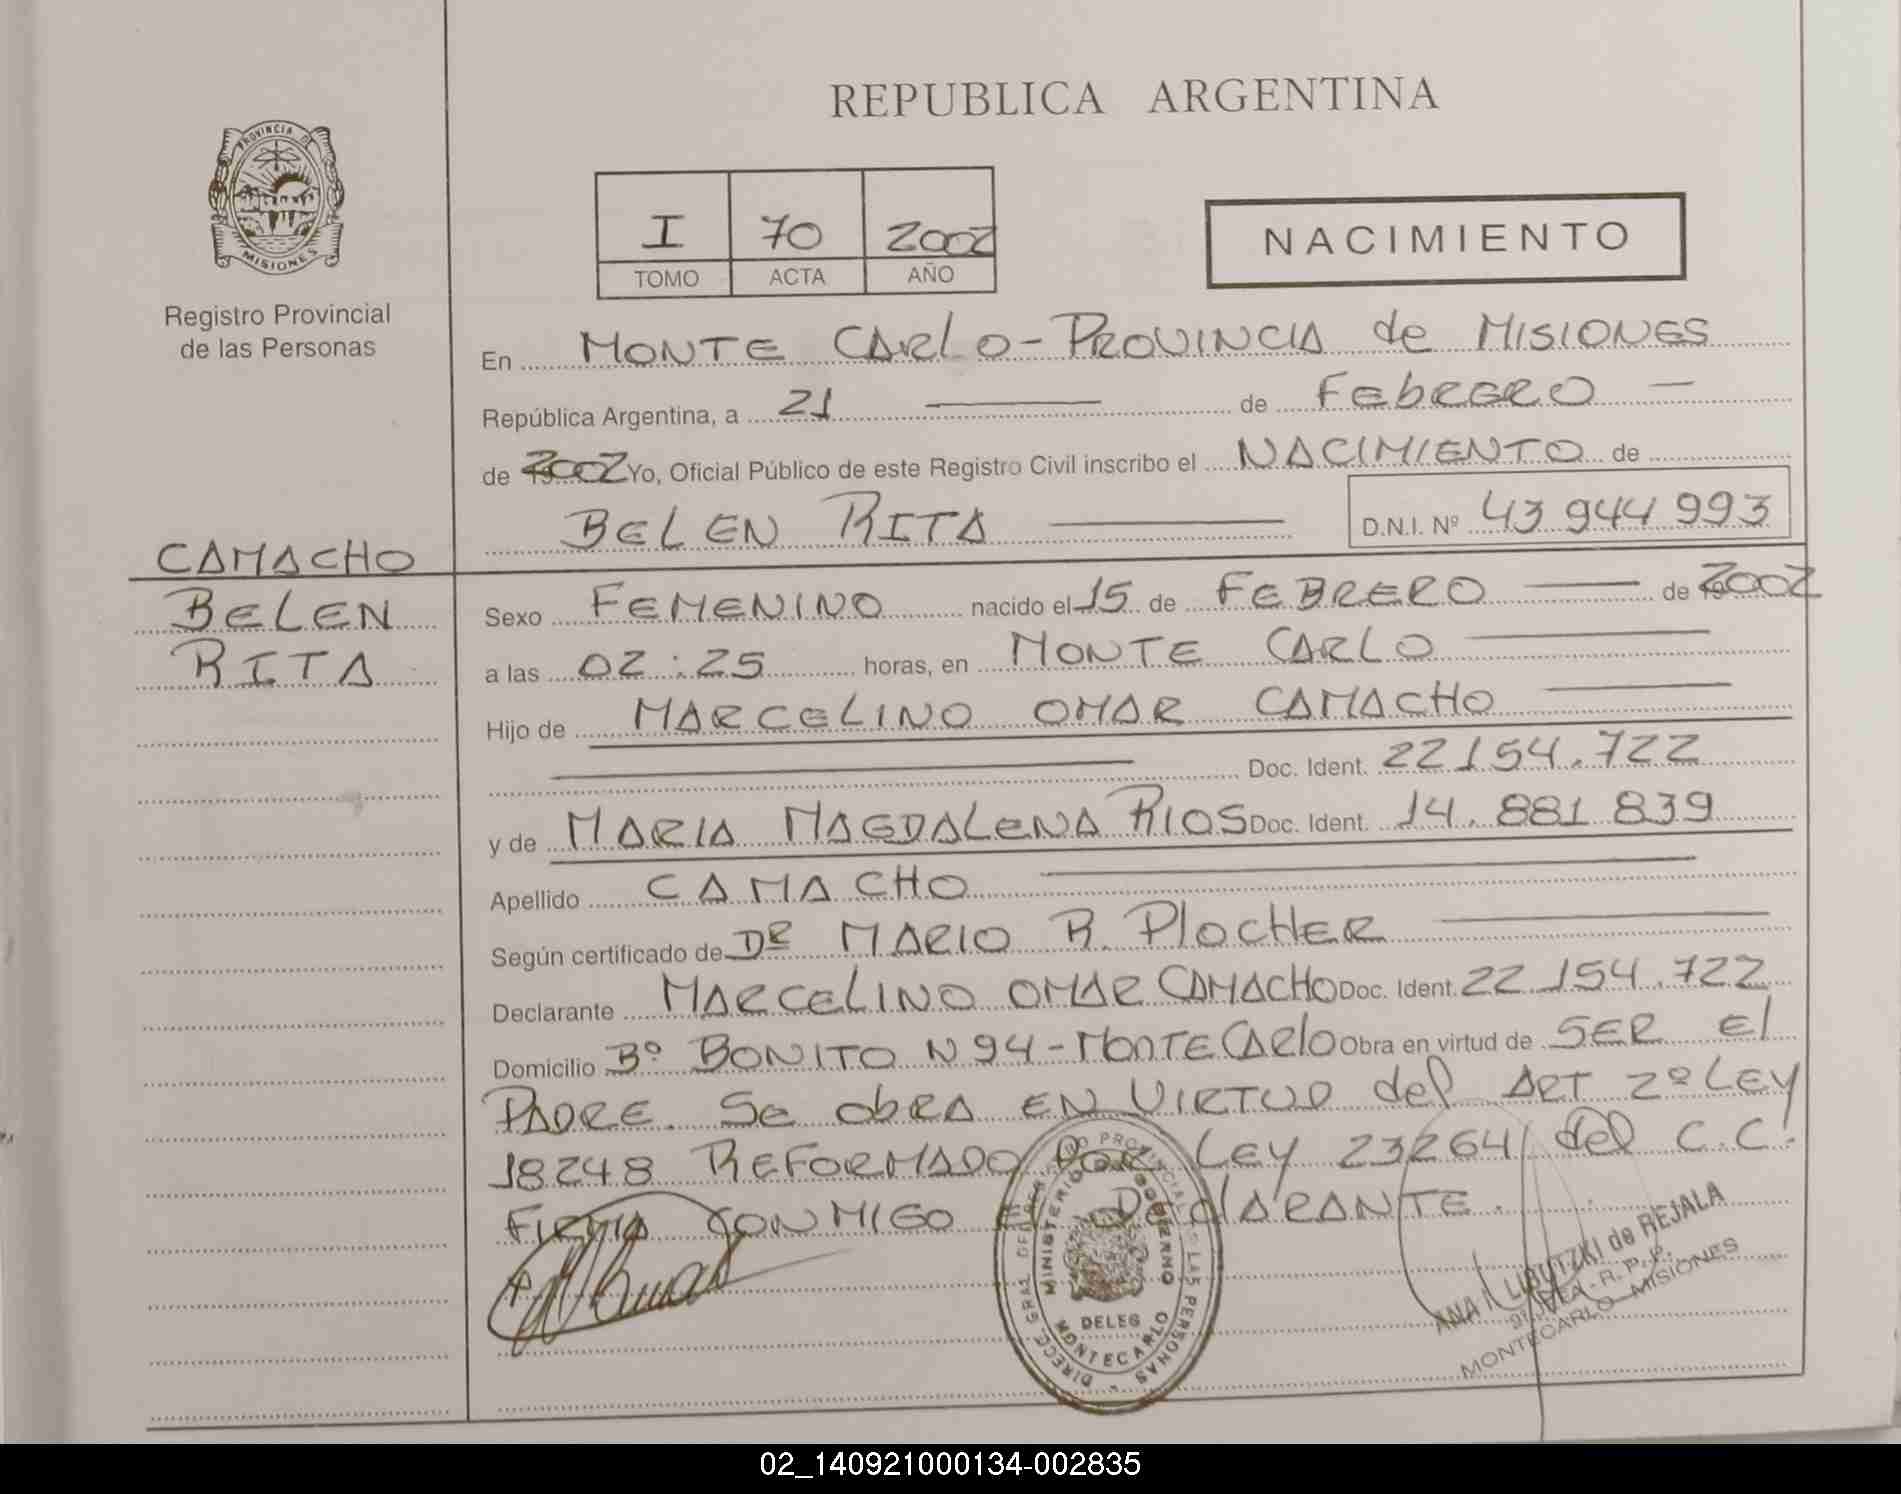 REPUBLICA ARGENTINA
PROVINCIA DE
MISIONES
Registro Provincial
de las Personas
I 70 2002
TOMO ACTA AÑO
NACIMIENTO
En MONTE CARLO - PROVINCIA de MISIONES
República Argentina, a 21 de FebRERO
de 2002 Yo, Oficial Público de este Registro Civil inscribo el NACIMIENTO de
BELEN RITA D.N.I. Nº 43 944 993
CAMACHO
BELEN
RITA
Sexo FEMENINO nacido el 15 de FEBRERO de 2002
a las 02:25 horas, en MONTE CARLO
Hijo de MARCELINO OMAR CAMACHO
Doc. Ident. 22154.722
y de MARIA MAGDALENA RIOS Doc. Ident. 14.881 839
Apellido CAMACHO
Según certificado de DR MARIO R. PlocHER
Declarante MARCELINO OMAR CAMACHO Doc. Ident. 22 154.722
Domicilio Bº BONITO N 94 - MONTECARlo Obra en virtud de SER El
PADRE. Se obRA EN VIRTUD del ART 2º LEY
18248 REFORMADO POR LEY 23264 del C.C.
FIRMA CONMIGO El DEclARANTE.
DIRECC. GRAL. DEL REGISTRO PROVINCIAL DE LAS PERSONAS
MINISTERIO DE GOBIERNO
DELEG
MONTECARLO
ANA I. LIBUTZKI de REJALA
R. P. P.
MONTECARLO - MISIONES
02_140921000134-002835